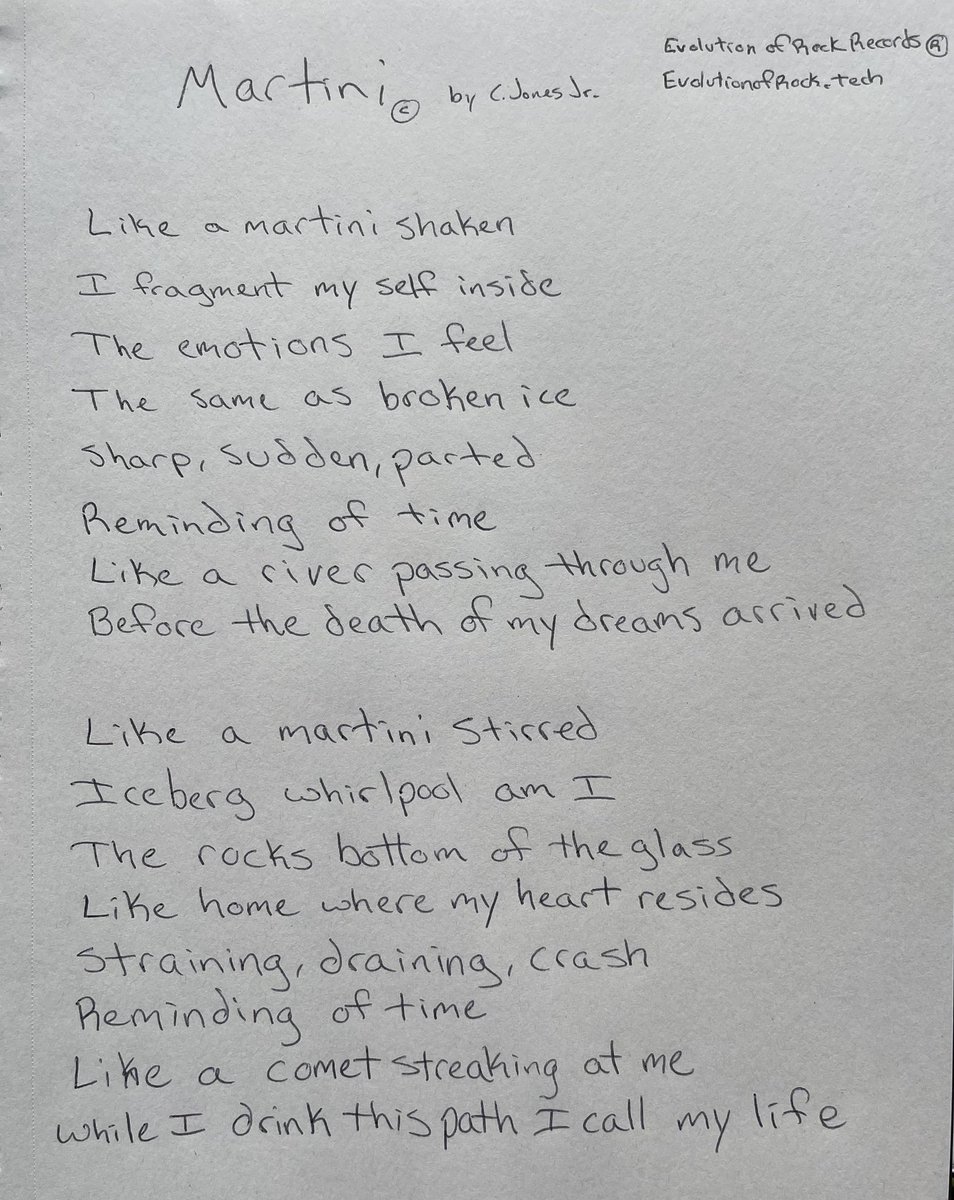 Martini © by C. Jones Jr.
Evolution of Rock Records ®
EvolutionofRock.tech
Like a martini shaken
I fragment my self inside
The emotions I feel
The same as broken ice
Sharp, sudden, parted
Reminding of time
Like a river passing through me
Before the death of my dreams arrived
Like a martini stirred
Iceberg whirlpool am I
The rocks bottom of the glass
Like home where my heart resides
Straining, draining, crash
Reminding of time
Like a comet streaking at me
while I drink this path I call my life